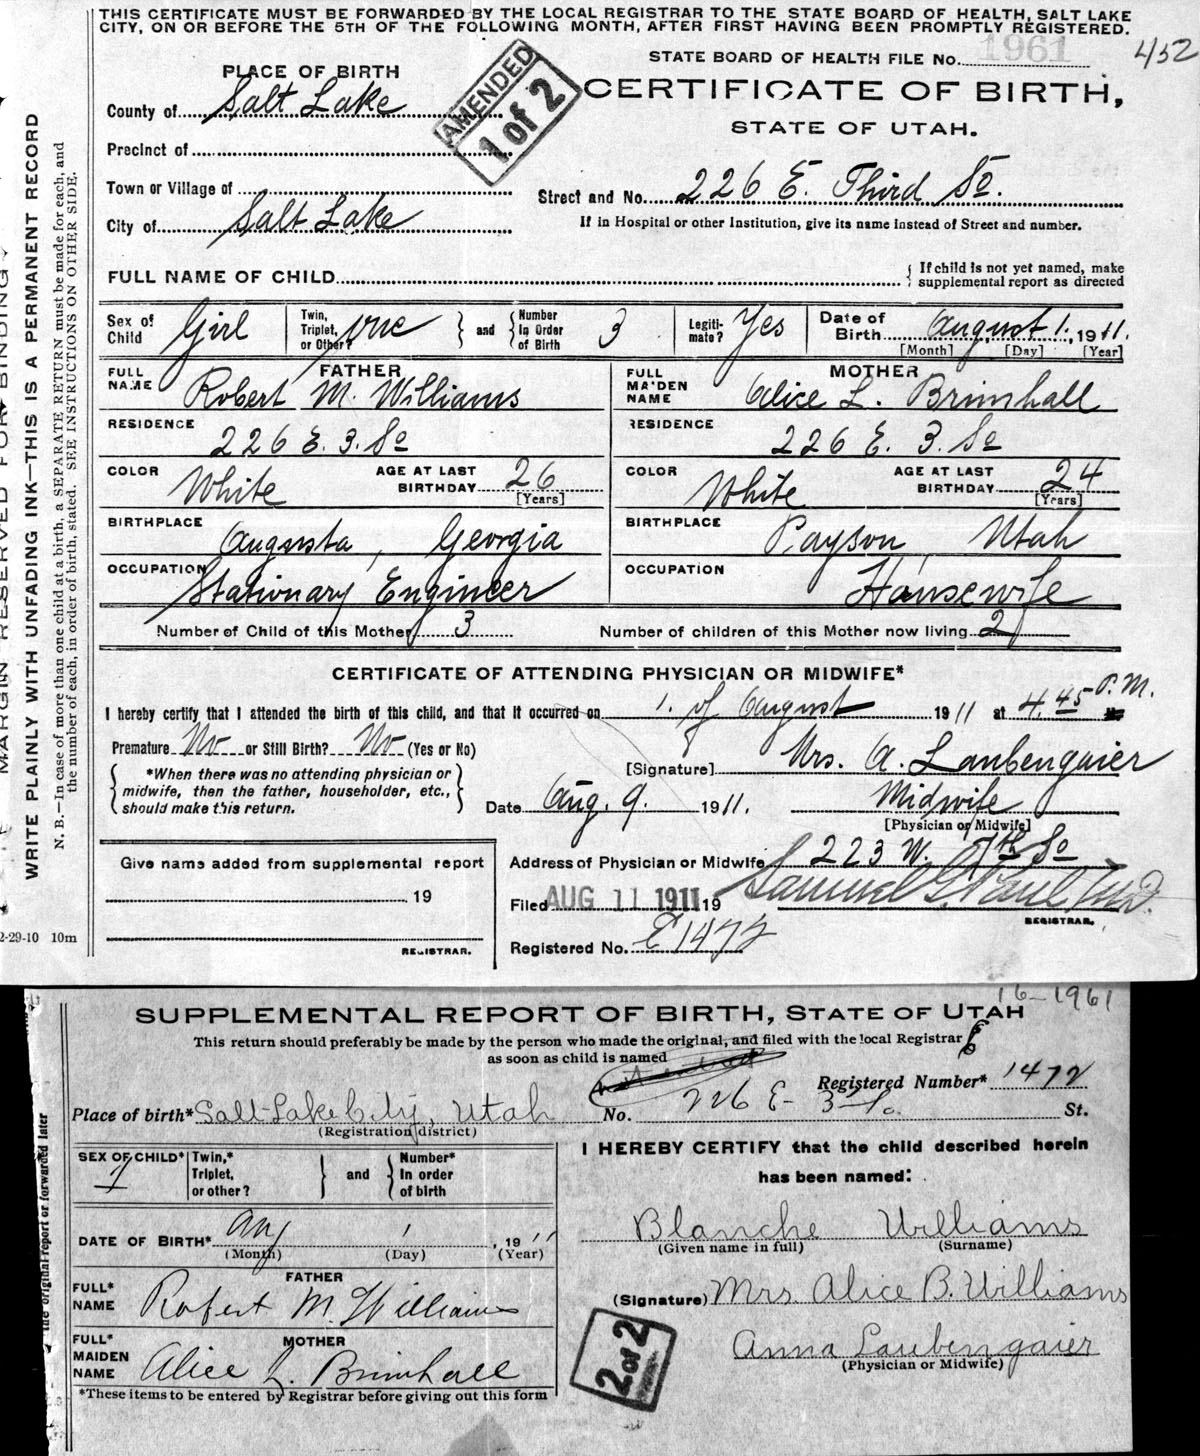 THIS CERTIFICATE MUST BE FORWARDED BY THE LOCAL REGISTRAR TO THE STATE BOARD OF HEALTH, SALT LAKE
CITY, ON OR BEFORE THE 5TH OF THE FOLLOWING MONTH, AFTER FIRST HAVING BEEN PROMPTLY REGISTERED.
STATE BOARD OF HEALTH FILE No. 1961
452
CERTIFICATE OF BIRTH,
STATE OF UTAH.
AMENDED
1 of 2
PLACE OF BIRTH
County of Salt Lake
Precinct of
Town or Village of
City of Salt Lake
Street and No. 226 E. Third So.
If in Hospital or other Institution, give its name instead of Street and number.
FULL NAME OF CHILD { If child is not yet named, make
supplemental report as directed
Sex of Child Girl
Twin, Triplet, or Other? one } and { Number In Order of Birth 3
Legitimate? Yes
Date of Birth August 1., 1911.
[Month] [Day] [Year]
FATHER
FULL NAME Robert M. Williams
RESIDENCE 226 E. 3. So
COLOR White AGE AT LAST BIRTHDAY 26 [Years]
BIRTHPLACE Augusta, Georgia
OCCUPATION Stationary Engineer
MOTHER
FULL MAIDEN NAME Alice L. Brimhall
RESIDENCE 226 E. 3. So
COLOR White AGE AT LAST BIRTHDAY 24 [Years]
BIRTHPLACE Payson, Utah
OCCUPATION Housewife
Number of Child of this Mother 3 Number of children of this Mother now living 2
CERTIFICATE OF ATTENDING PHYSICIAN OR MIDWIFE*
I hereby certify that I attended the birth of this child, and that it occurred on 1. of August 1911 at 4.45 P.M.
Premature No or Still Birth? No (Yes or No)
{ *When there was no attending physician or
midwife, then the father, householder, etc.,
should make this return. }
[Signature] Mrs. A. Laubengaier
Date Aug. 9. 1911. Midwife
[Physician or Midwife]
Address of Physician or Midwife 223 W. 7th So
Give name added from supplemental report
19
REGISTRAR.
Filed AUG 11 1911 19 Samuel G. Paul, M.D.
REGISTRAR.
Registered No. E1472
MARGIN RESERVED FOR BINDING
WRITE PLAINLY WITH UNFADING INK—THIS IS A PERMANENT RECORD
N. B.—In case of more than one child at a birth, a SEPARATE RETURN must be made for each, and
the number of each, in order of birth, stated. SEE INSTRUCTIONS ON OTHER SIDE.
2-29-10 10m
16-1961
SUPPLEMENTAL REPORT OF BIRTH, STATE OF UTAH
This return should preferably be made by the person who made the original, and filed with the local Registrar
as soon as child is named
Registered Number* 1472
Place of birth* Salt Lake City, Utah No. 226 E 3 So. St.
(Registration district)
SEX OF CHILD*
Twin,* Triplet, or other? } and { Number* In order of birth
DATE OF BIRTH* Aug 1, 1911
(Month) (Day) (Year)
FATHER
FULL* NAME Robert M. Williams
MOTHER
FULL* MAIDEN NAME Alice L. Brimhall
*These items to be entered by Registrar before giving out this form
I HEREBY CERTIFY that the child described herein
has been named:
Blanche Williams
(Given name in full) (Surname)
(Signature) Mrs Alice B. Williams
Anna Laubengaier
(Physician or Midwife)
2 of 2
the original report or forwarded later